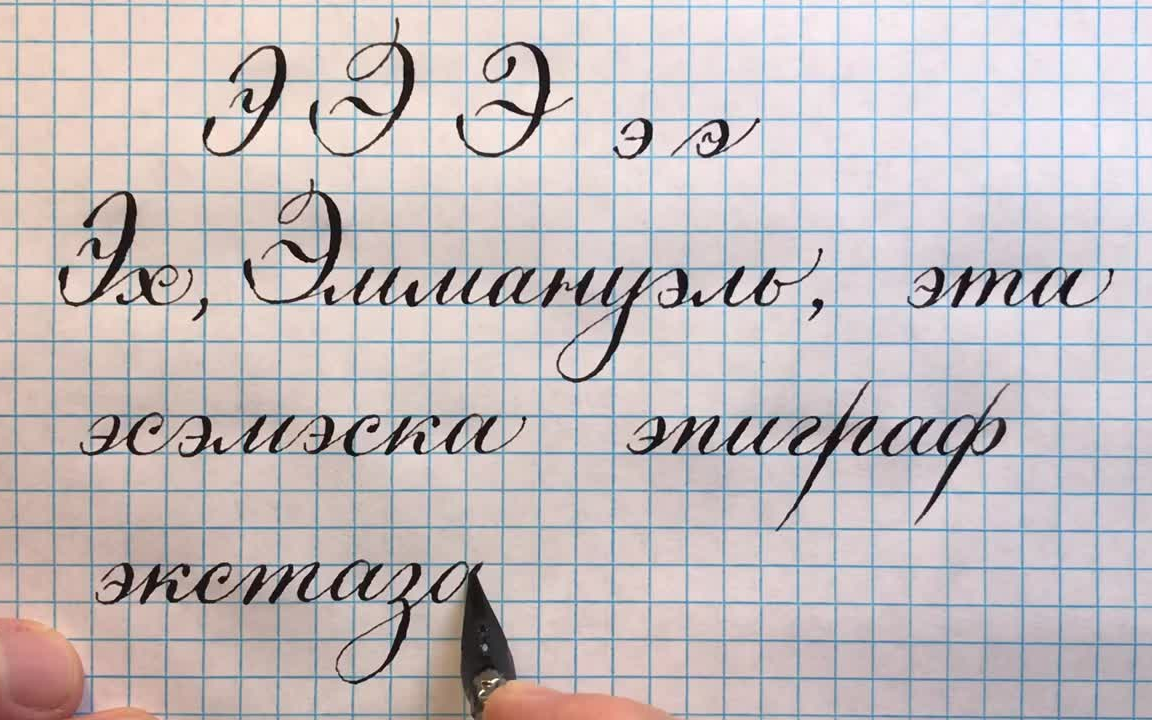 Э Э Э э э
Эх, Эммануэль, эта
эсэмэска эпиграф
экстаза